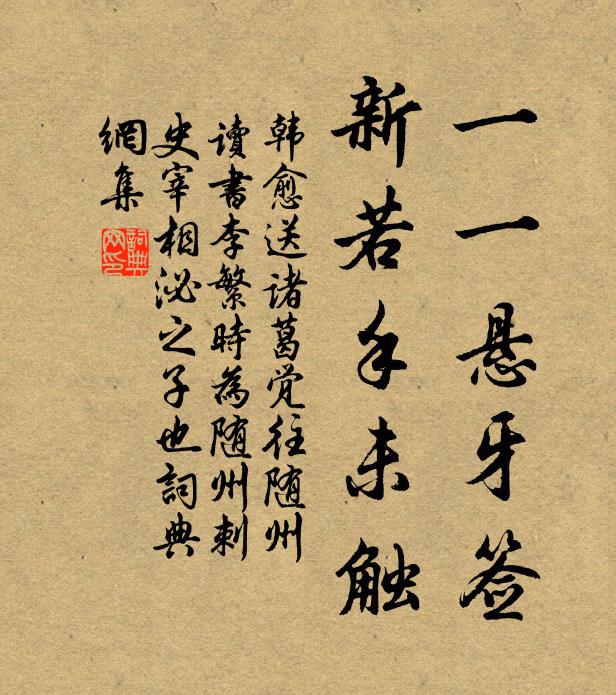 一一悬牙签
新若手未触
韩愈送诸葛觉往随州
讀書李繁時為随州刺
史宰相泌之子也詞典
網集
詞典
网印